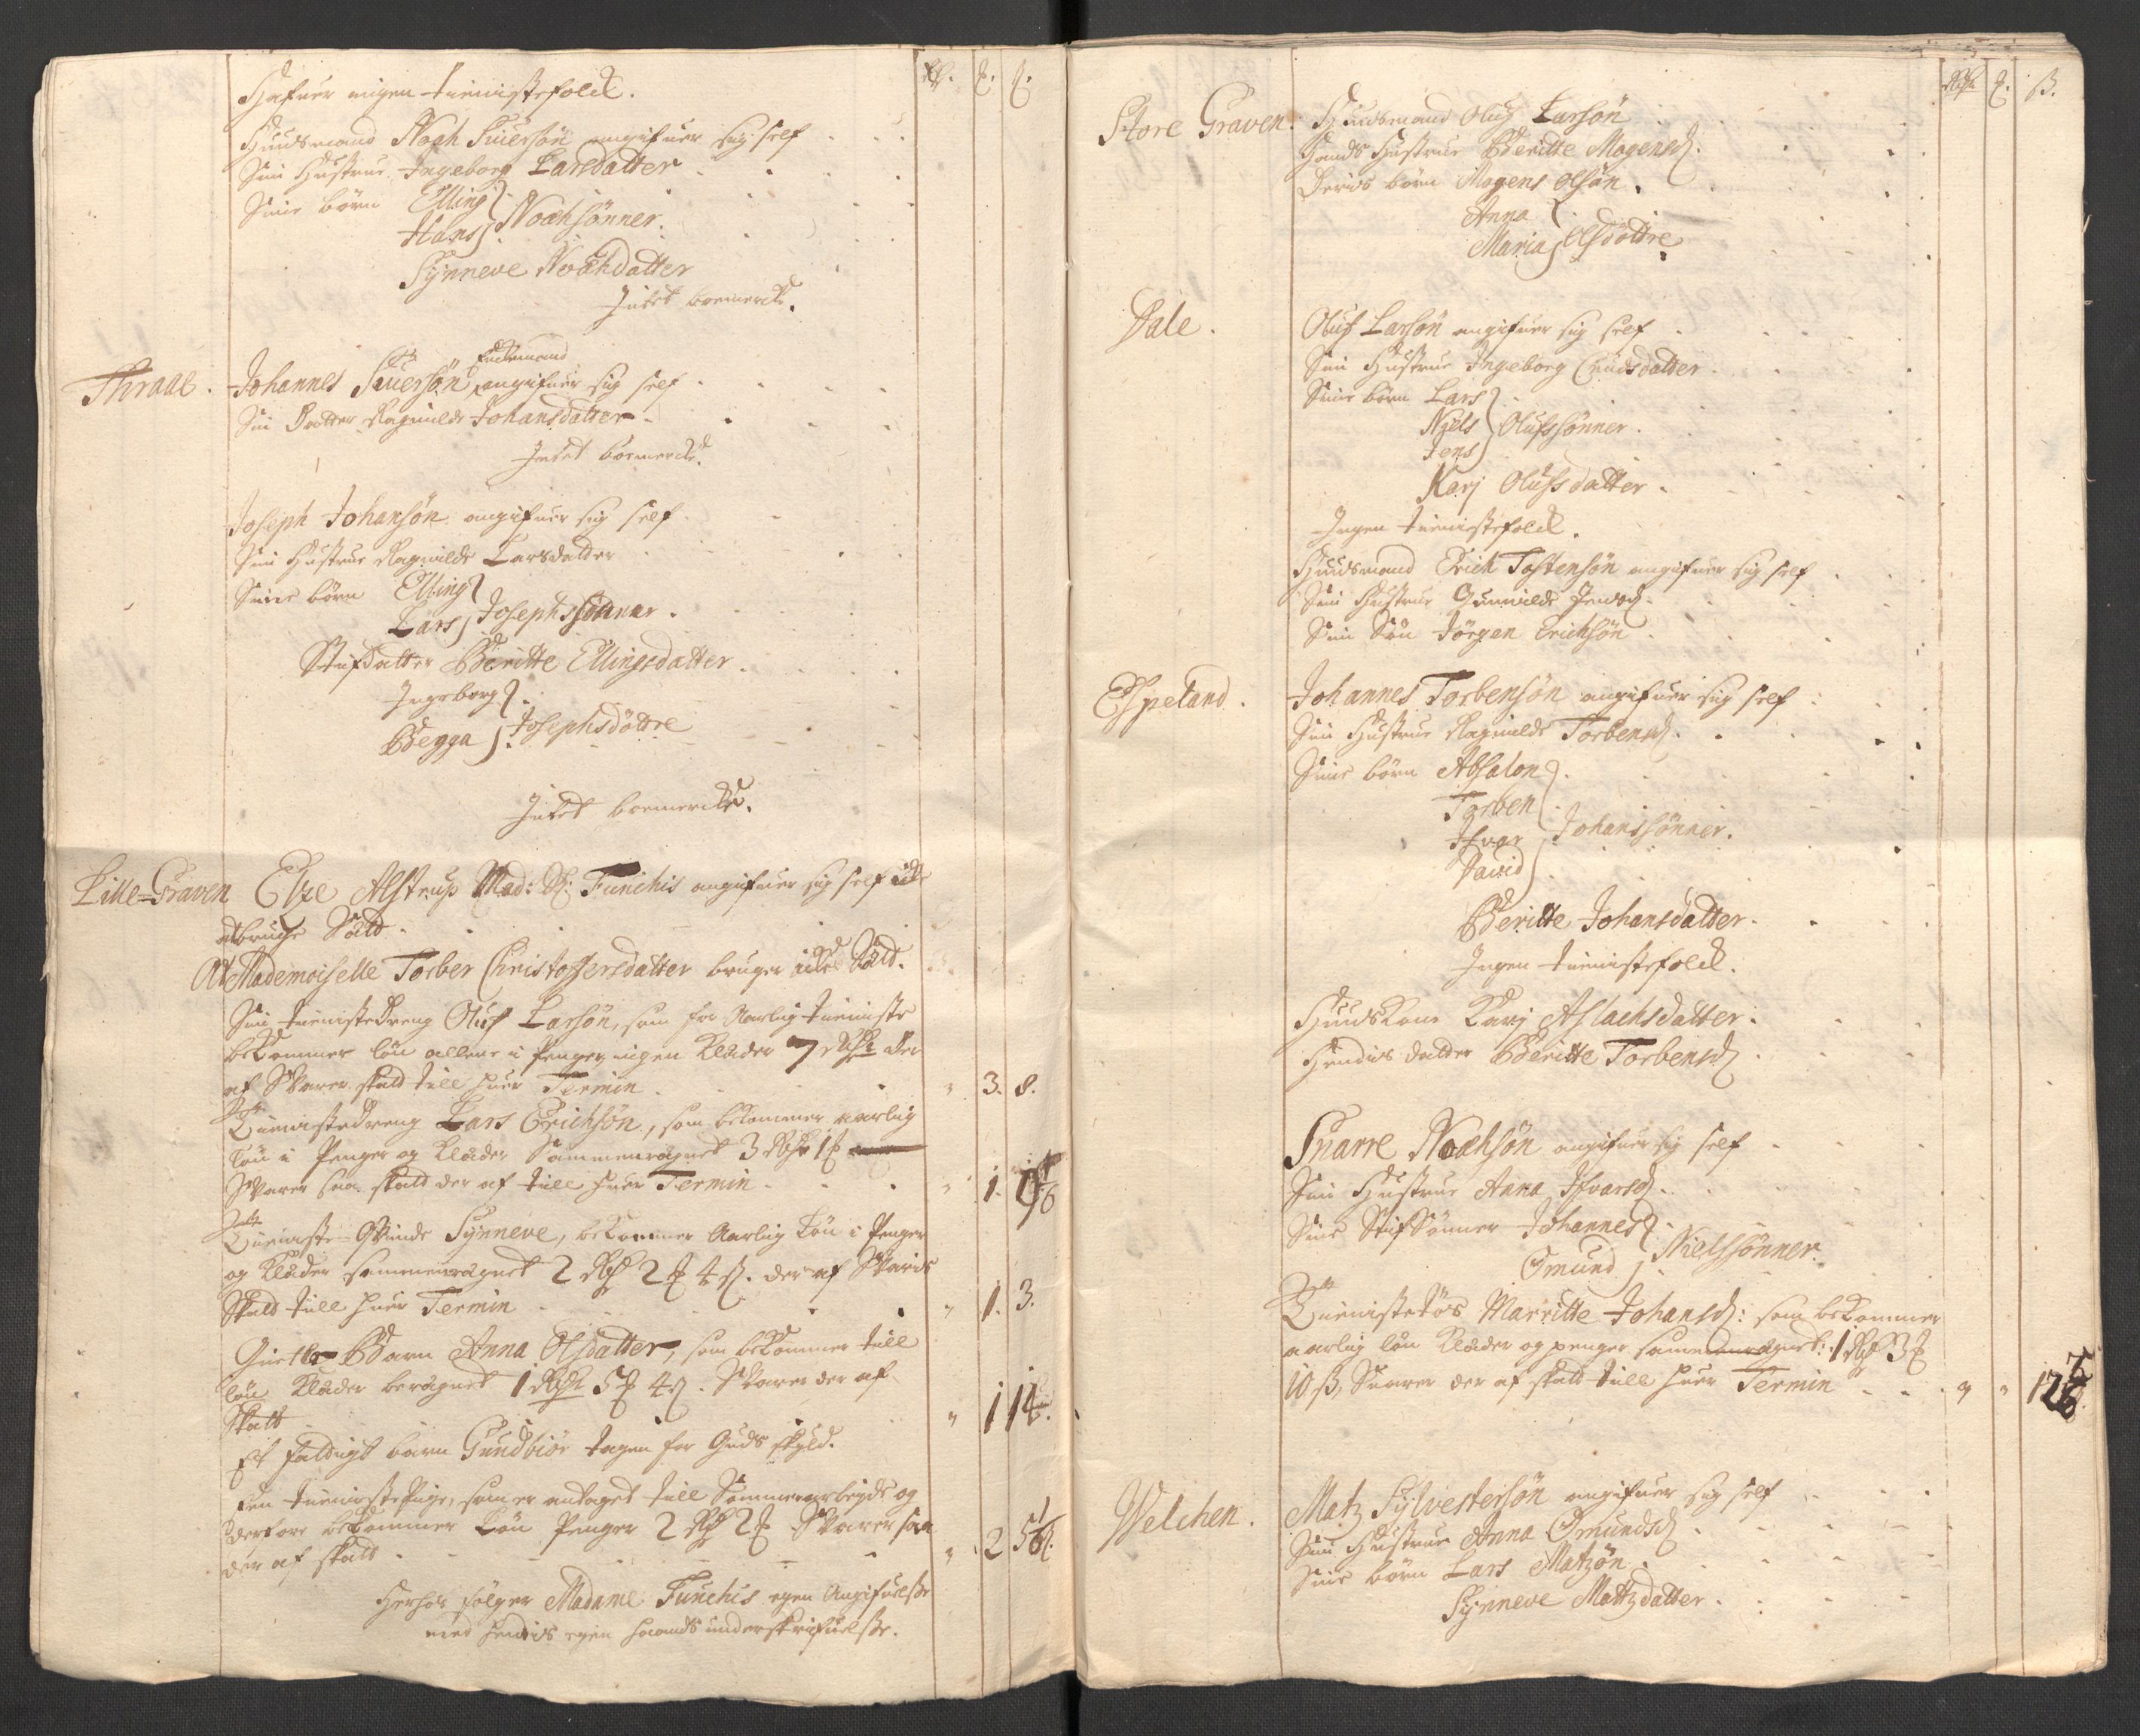 Rdr. ℔. ß.
Hafuer ingen tieniste folck.
Huusmand Noah Siuersøn angifuer sig self
Sin Hustrue Ingeborg Larsdatter
Sine børn Elling
Hans Noahsønner.
Synneve Noahdatter
Intet bemercke.
Thraae.
Enckemand
Johannes Siuersøn angifuer sig self
Sin Datter Ragnilde Johansdatter
Intet bemercke.
Joseph Johansøn angifuer sig self
Sin Hustrue Ragnilde Larsdatter
Sine børn Elling
Lars Josephssønner.
Stifdatter Beritte Ellingsdatter
Ingeborg
Begga Josephsdøttre
Intet bemercke.
Lille-Graven Elze Alstrup Mad: Funchis angifuer sig self icke
at bruge
At Mademoiselle Torber Christophersdatter bruger icke
Sin tienistedreng Oluf Larsøn, som for Aarlig tieniste
bekommer løn allene i Penger, ingen Klæder 7 Rdr der
af Svarer skatt till huer Termin 3. 8.
Tienistedreng Lars Erichsøn, som bekommer aarlig
løn i Penger og Klæder Sammenregnet 3 Rdr 1
Svarer saa skatt der af till huer Termin 1.
Tieniste-Qvinde Synneve, bekommer Aarlig Løn i Penger
og Klæder sammenregnet 2 Rdr 2 4 ß. der af Svaris
Skatt till huer Termin 1. 3.
Barn Anna Olsdatter, som bekommer till
løn Klæder beregnet 1 Rdr 5 4 ß. Svarer der af
Skatt 1 14.
Et fattigt barn Gundbiør tagen for Guds skyld.
Een tieniste Pige, som er antaget till Sommerarbeyde og
derfore bekommer Løn Penger 2 Rdr 2 Svarer saa
der af skatt 2 5
Herhos følger Madame Funchis egen Angifuelse
med hendis egen haands underskrifuelse.
Rdr ℔. ß.
Store Graven. Huusmand Oluf Larsøn
Hands Hustrue Beritte Mogensd.
Deris børn Mogens Olsøn.
Anna
Maria Olsdøttre
Dale. Oluf Larsøn angifuer sig self
Sin Hustrue Ingeborg Cnudsdatter
Sine børn Lars
Niels Olufssønner.
Jens
Karj Olufsdatter.
Ingen tienistefolck.
Huusmand Erich Tostensøn angifuer sig self
Sin Hustrue Gunnilde Jensd.
Sin Søn Jørgen Erichsøn
Espeland. Johannes Torbensøn angifuer sig self
Sin Hustrue Ragnilde Torbensd.
Sine børn Absalon
Torben
Ifvar Johanssønner.
David
Beritte Johansdatter.
Ingen tienistefolck.
Huuskone Karj Aslachsdatter.
Hendis datter Beritte Torbensd.
Snarre Noahsøn angifuer sig self
Sin Hustrue Anna Ifvarsd.
Sine Stif Sønner Johannes
Omund Nielssønner.
Tienistetøs Marritte Johansd: som bekommer
aarlig løn Klæder og penger sammenregnet: 1 Rdr 3
10 ß, Svarer der af skatt till huer Termin 12
Velchen. Matz Sylvestersøn angifuer sig self
Sin Hustrue Anna Omundsd
Sine børn Lars Matzøn
Synneve Mattzdatter.